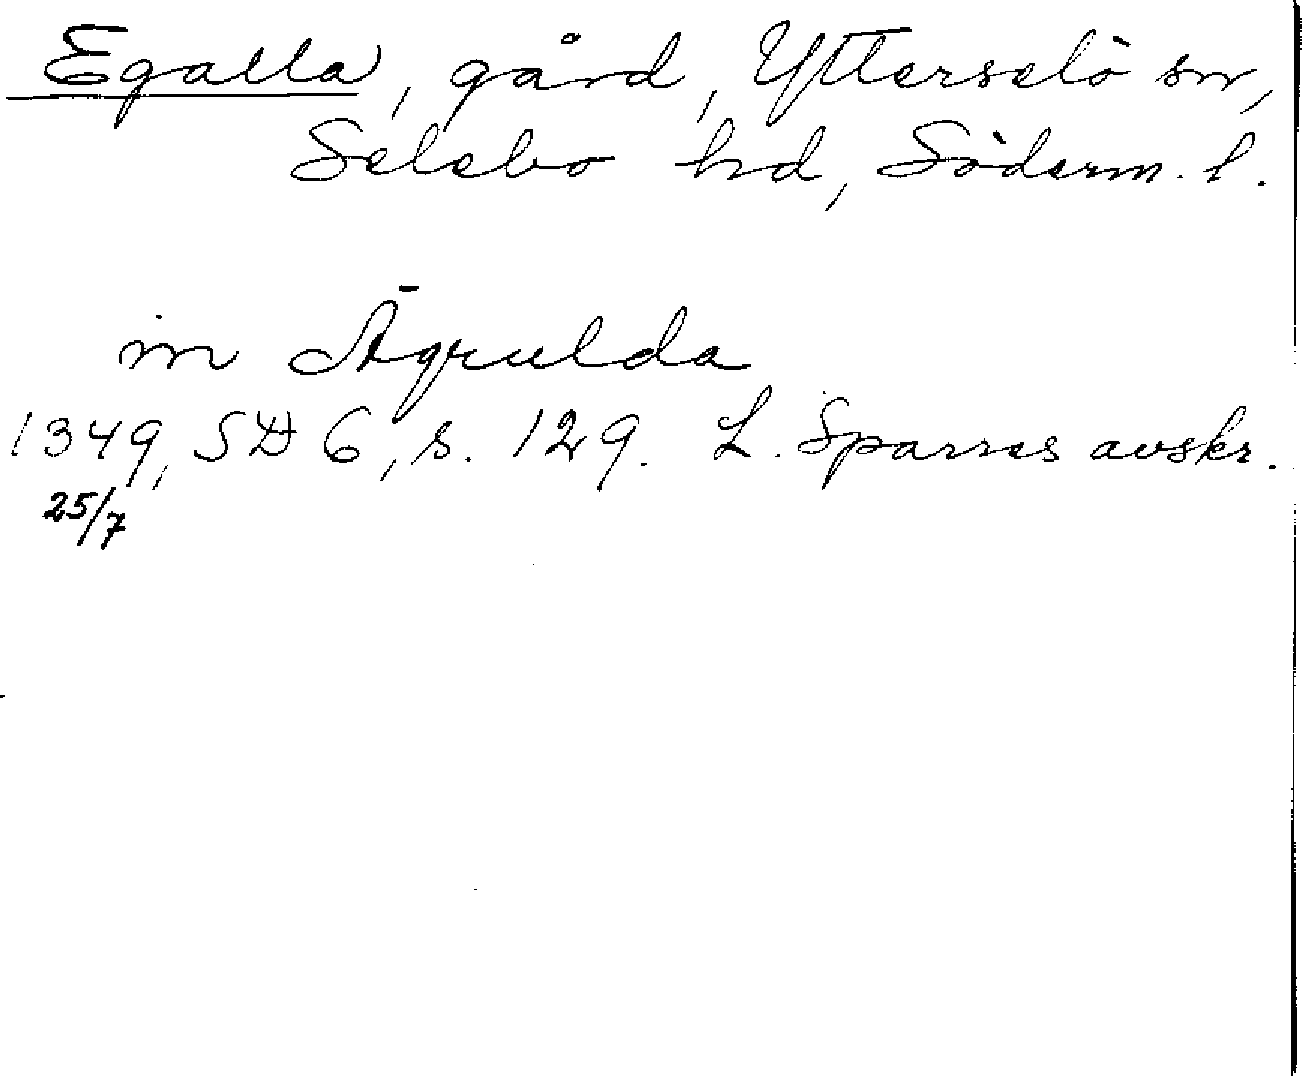 Egalla, gård, Ytterselö sn,
Selebo hd, Söderm. l.
in Ägrulda
1349, SD 6, s. 129. L. Sparres avskr.
25/7